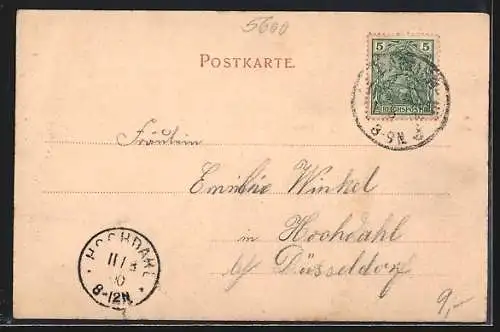 5600
POSTKARTE.
5 5
REICHSPOST
8-9N.
Fräulein
Emilie Winkel
in Hochdahl
b/ Düsseldorf
HOCHDAHL
11/8
00
8-12N
9,—